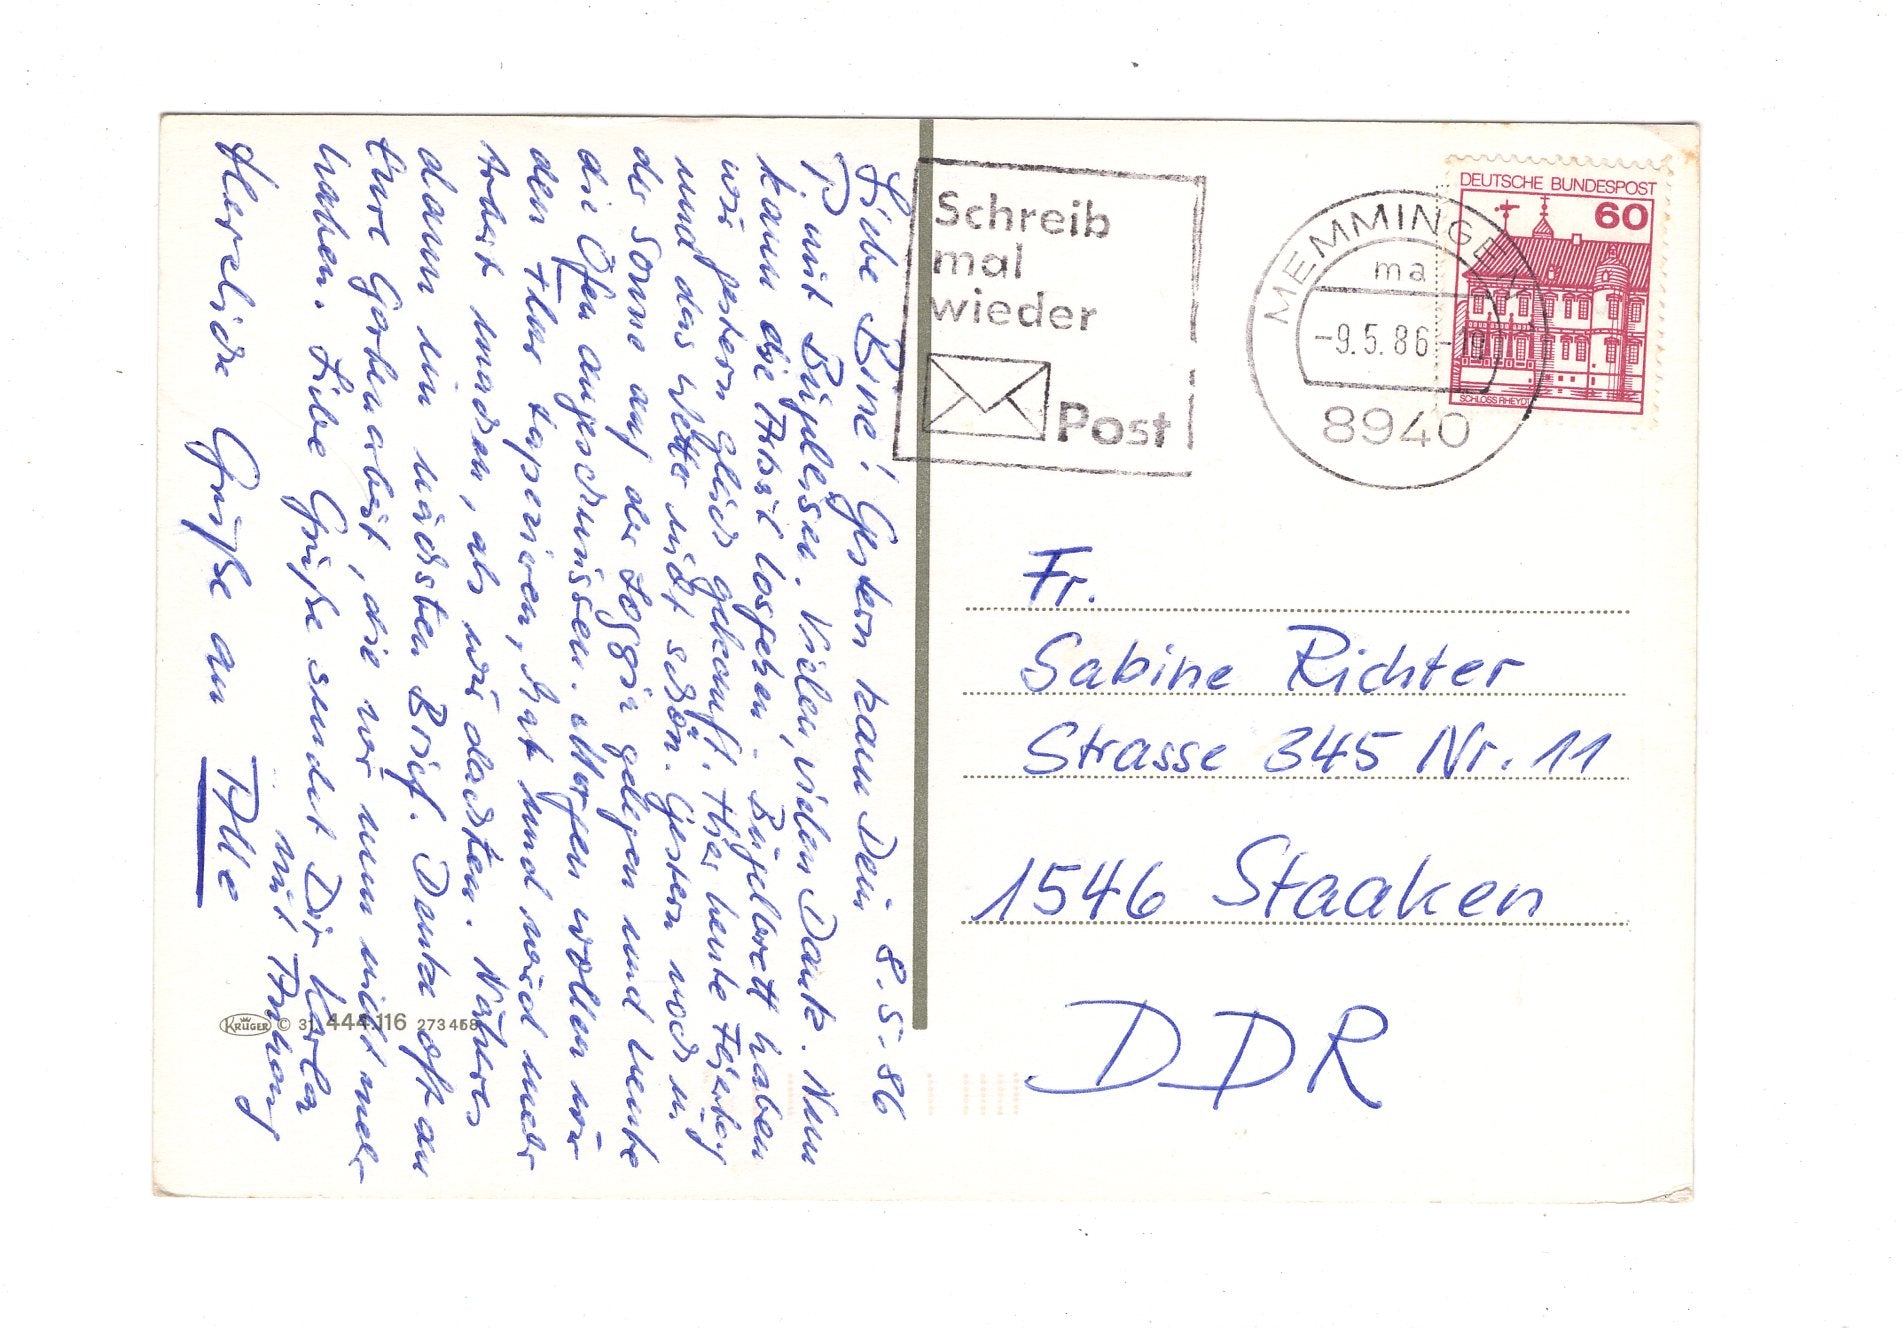 Liebe Bine! Gestern kam Dein 8.5.86
P. mit Bügeleisen. Vielen, vielen Dank. Nun
kann die Arbeit losgehen. Bügelbrett haben
wir gestern gleich gekauft. Hier heute Feiertag
und das Wetter nicht schön. Gestern noch in
der Sonne auf der Loggia gelegen und heute
die Öfen angeschmissen. Morgen wollen wir
den Flur tapezieren, hat und wird mehr
Arbeit machen, als wir dachten. Näheres
dann im nächsten Brief. Denke oft an
Eure Gartenarbeit, die wir nun nicht mehr
haben. Liebe Grüße sendet Dir Karla
mit Anhang
Herzliche Grüße an Alle
KRÜGER © 31 444.116 273458
Schreib
mal
wieder
Post
MEMMINGEN
ma
-9.5.86-
8940
DEUTSCHE BUNDESPOST
60
SCHLOSS RHEYDT
Fr.
Sabine Richter
Strasse 345 Nr. 11
1546 Staaken
DDR